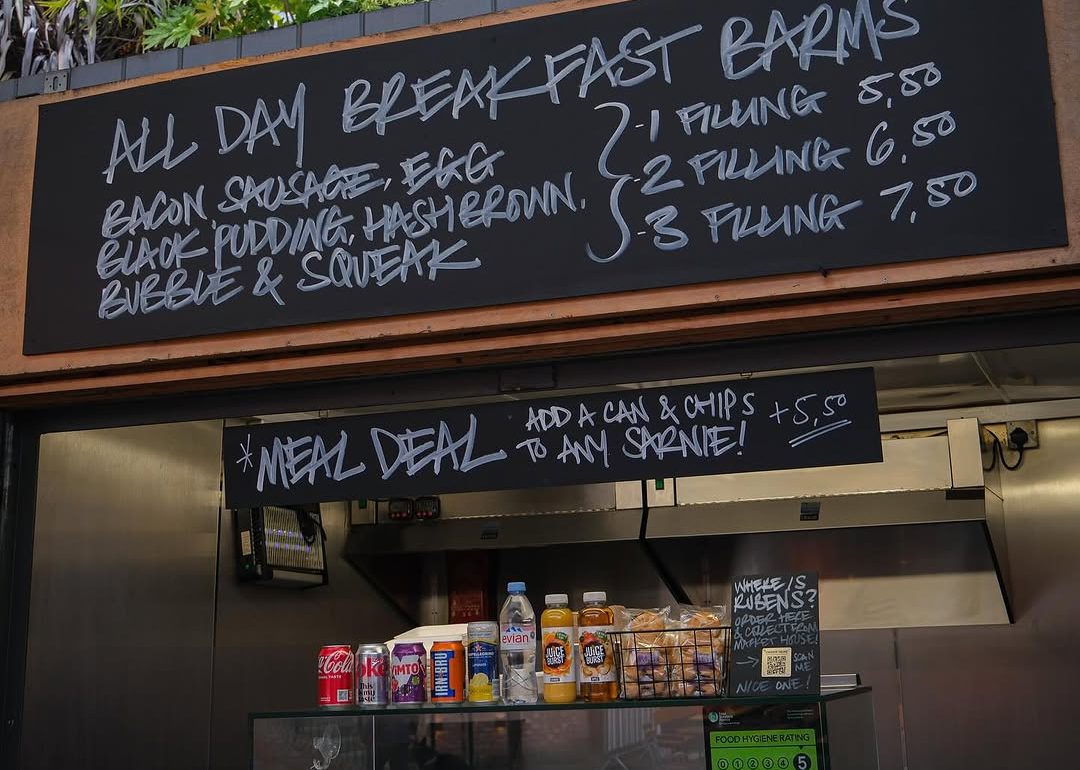 ALL DAY BREAKFAST BARMS
BACON, SAUSAGE, EGG
BLACK PUDDING, HASH BROWN,
BUBBLE & SQUEAK
-1 FILLING 5,50
-2 FILLING 6,50
-3 FILLING 7,50
*MEAL DEAL ADD A CAN & CHIPS
TO ANY SARNIE! +5,50
WHERE IS
RUBENS?
ORDER HERE
& COLLECT FROM
MARKET HOUSE!
→ SCAN
ME
NICE ONE!
Coca-Cola
oke
VIMTO
IRN-BRU
evian
JUICE
BURST
JUICE
BURST
FOOD HYGIENE RATING
0 1 2 3 4 5